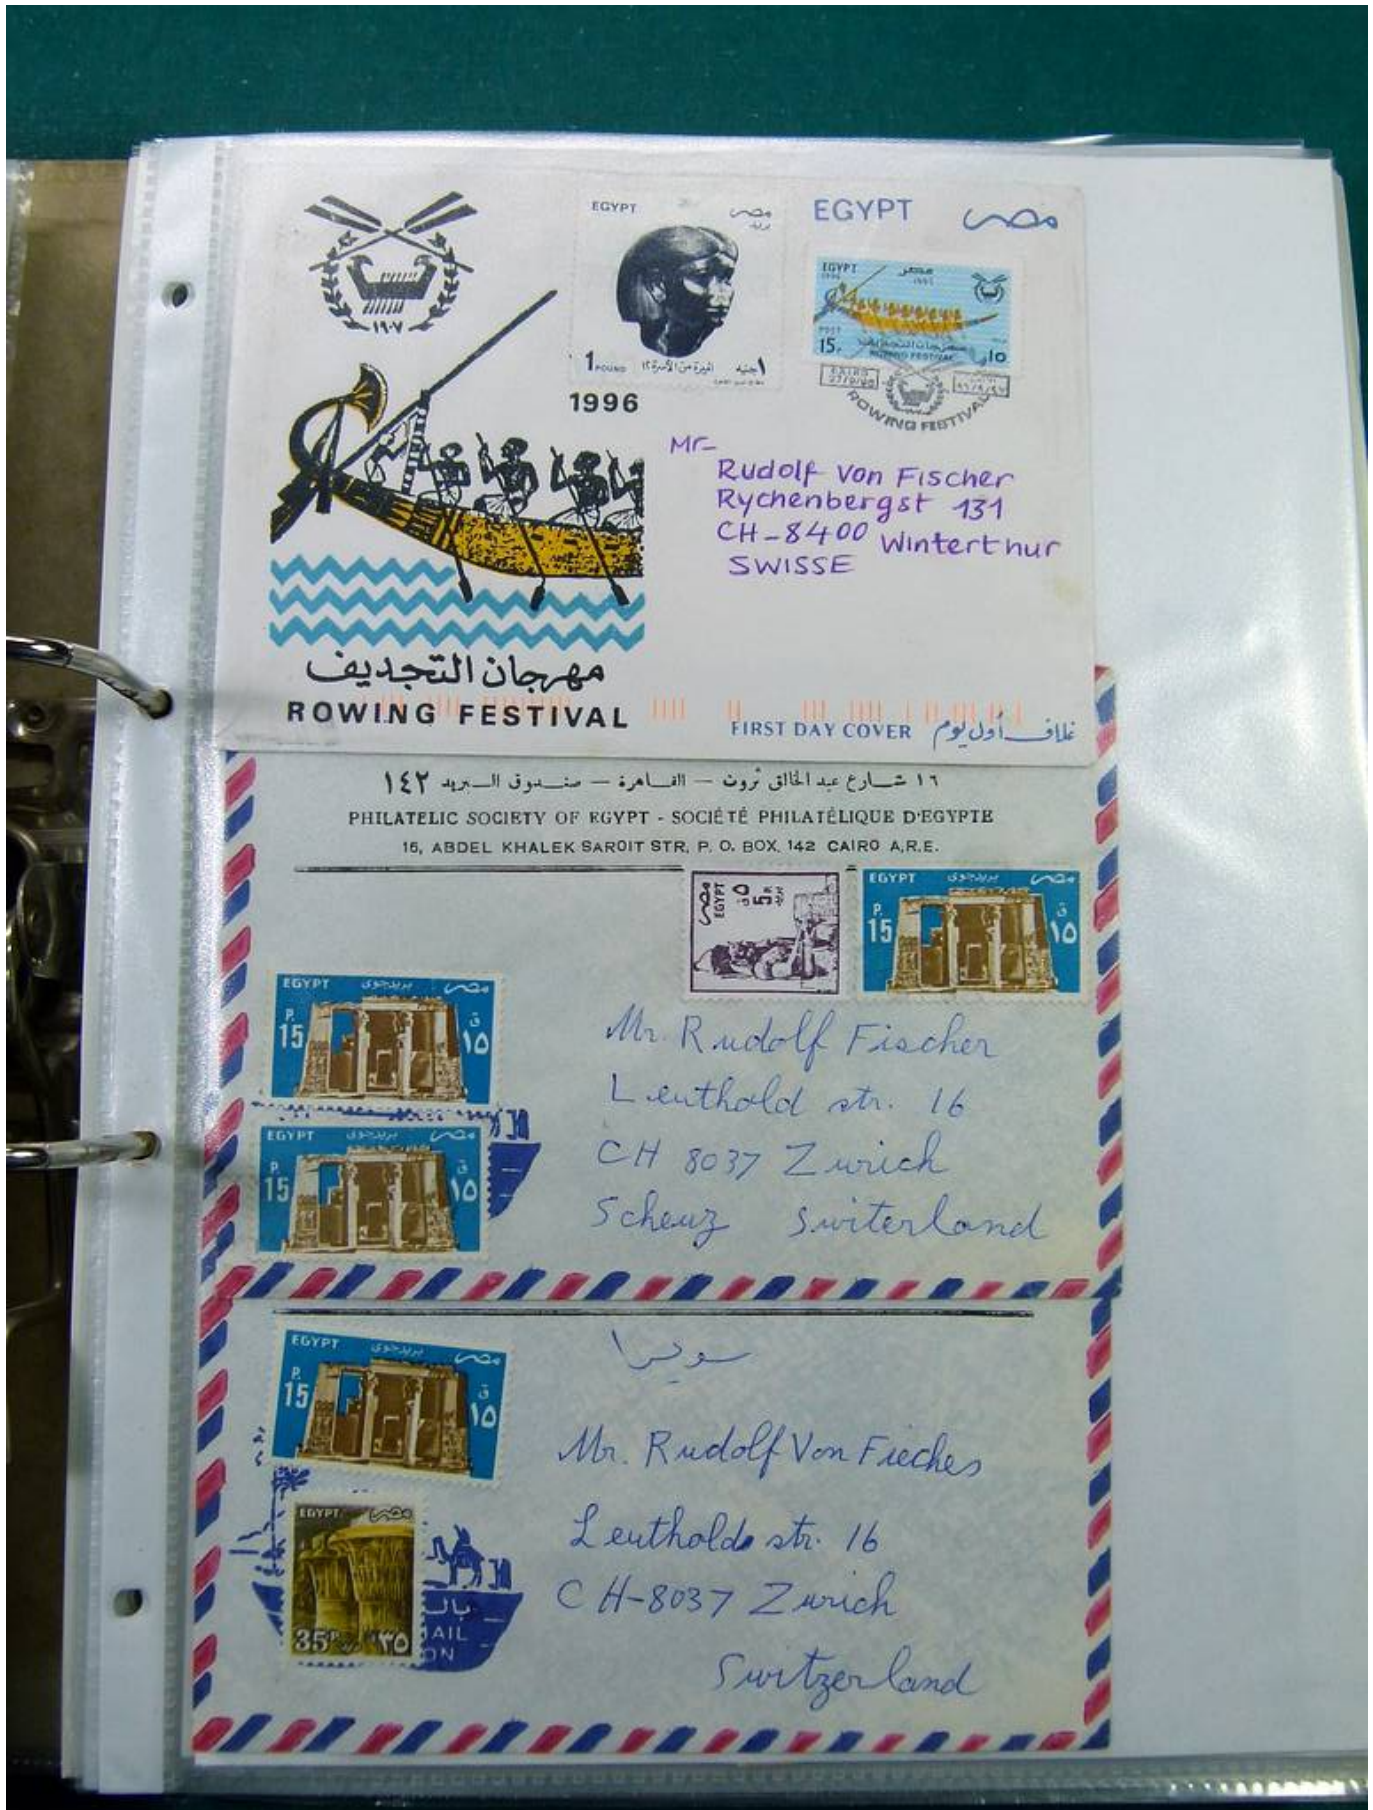 ١٩٠٧
EGYPT مصر
بريد
1 POUND ١ جنيه
أميرة من الأسرة ١٢
EGYPT مصر
EGYPT مصر
1996 ١٩٩٦
POST
15P ١٥
مهرجان التجديف
ROWING FESTIVAL
CAIRO
ROWING FESTIVAL
1996
Mr-
Rudolf Von Fischer
Rychenbergst 131
CH-8400 Winterthur
SWISSE
مهرجان التجديف
ROWING FESTIVAL
FIRST DAY COVER غلاف أول يوم
١٦ شارع عبد الخالق ثروت — القاهرة — صندوق البريد ١٤٢
PHILATELIC SOCIETY OF EGYPT - SOCIÉTÉ PHILATÉLIQUE D'EGYPTE
16, ABDEL KHALEK SAROIT STR, P. O. BOX. 142 CAIRO A.R.E.
مصر EGYPT
٥ق 5P بريد
EGYPT بريد جوى مصر
P. 15 ق ١٥
EGYPT بريد جوى مصر
P. 15 ق ١٥
EGYPT بريد جوى مصر
P. 15 ق ١٥
Mr. Rudolf Fischer
Leuthold str. 16
CH 8037 Zurich
Scheuz Switerland
سويسرا
EGYPT بريد جوى مصر
P. 15 ق ١٥
Mr. Rudolf Von Fieches
Leutholds str. 16
CH-8037 Zurich
Switzerland
EGYPT مصر
35P ٣٥
بال
AIL
ON